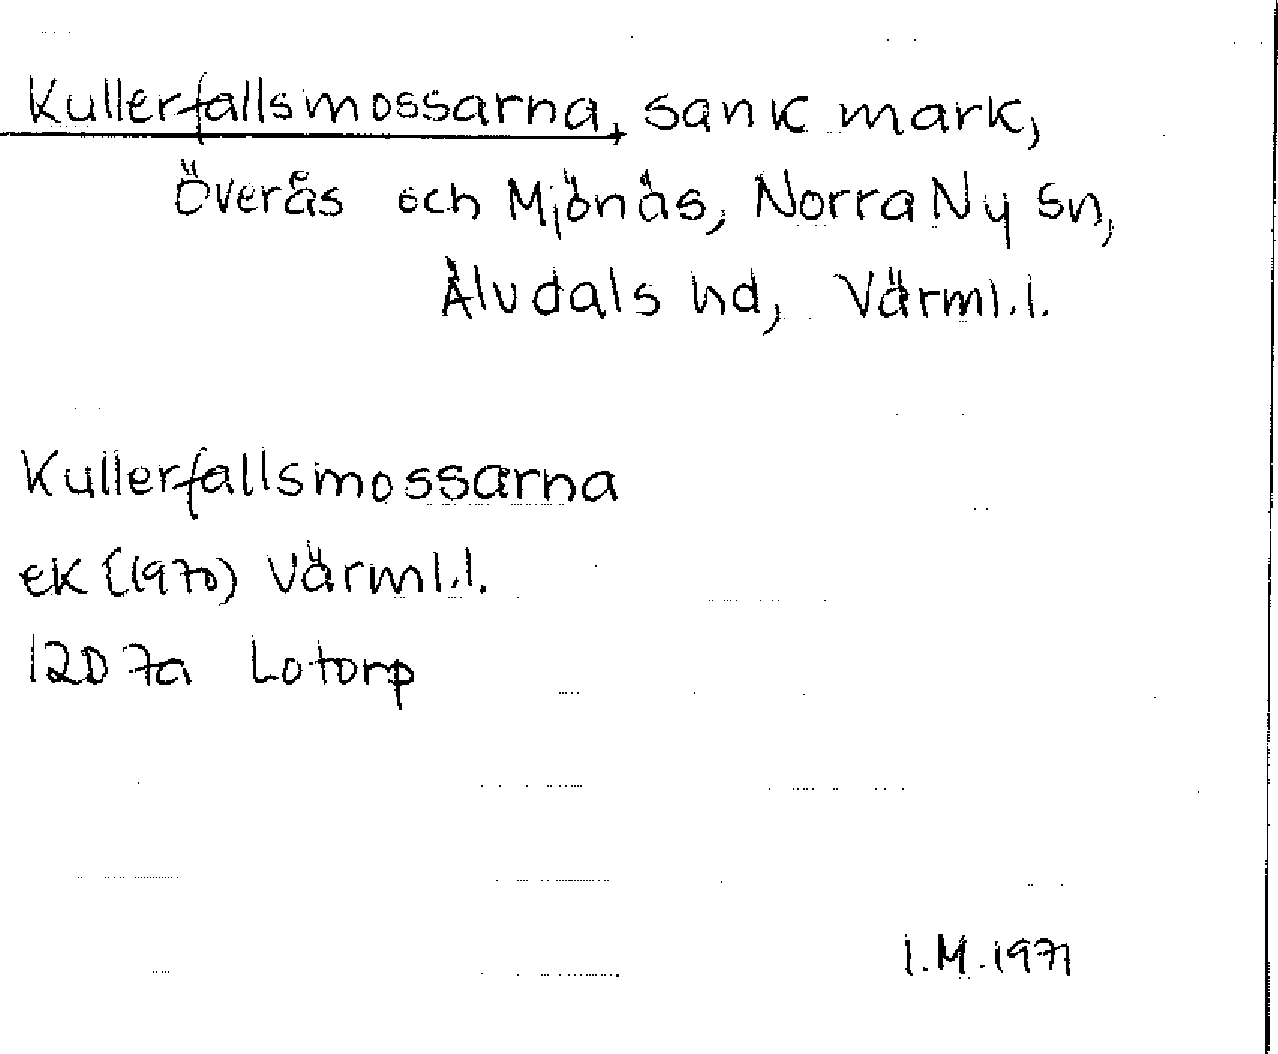 Kullerfallsmossarna, sank mark,
Överås och Mjönäs, Norra Ny sn,
Älvdals hd, Värml.l.
Kullerfallsmossarna
ek (1970) Värml.l.
12D 7a Lotorp
I.M.1971